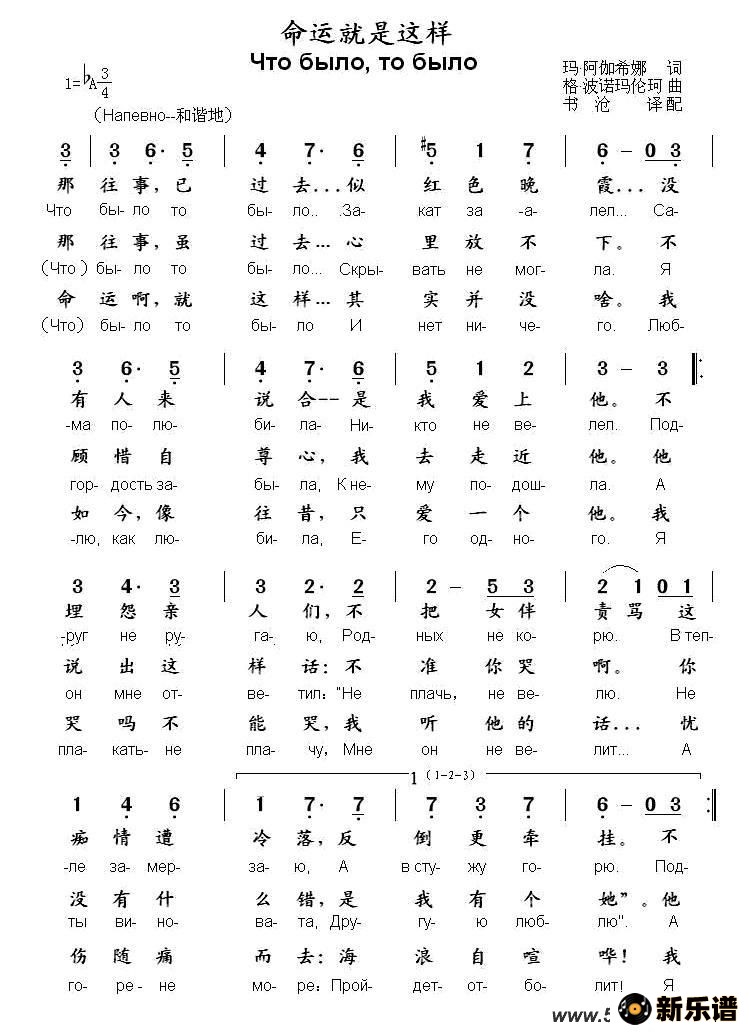 命运就是这样
Что было, то было
1=♭A 3/4
玛·阿伽希娜 词
格·波诺玛伦珂 曲
书沧 译配
（Напевно--和谐地）
3 | 3 6· 5 | 4 7· 6 | #5 1 7 | 6 – 0 3 |
那 往 事，已 过 去... 似 红 色 晚 霞... 没
Что бы- ло то бы- ло.. .За- кат за -а- лел... Са-
那 往 事，虽 过 去... 心 里 放 不 下。不
(Что ) бы- ло то бы- ло... Скры- вать не мог- ла. Я
命 运 啊，就 这 样... 其 实 并 没 啥。我
(Что) бы- ло то бы- ло И нет ни- че- го. Люб-
3 6· 5 | 4 7· 6 | 5 1 2 | 3 – 3 :
有 人 来 说 合-- 是 我 爱 上 他。不
-ма по- лю- би- ла- Ни- кто не ве- лел. Под-
顾 惜 自 尊 心，我 去 走 近 他。他
гор- дость за- бы- ла, К не- му по- дош- ла. А
如 今，像 往 昔，只 爱 一 个 他。我
-лю, как лю- би- ла, Е- го од- но- го. Я
3 4· 3 | 3 2· 2 | 2 – 5 3 | 2 1 0 1 |
埋 怨 亲 人 们，不 把 女 伴 责 骂 这
-руг не ру- га- ю, Род- ных не ко- рю. В теп-
说 出 这 样 话：不 准 你 哭 啊。你
он мне от- ве- тил: "Не плачь, не ве- лю. Не
哭 吗 不 能 哭，我 听 他 的 话... 忧
пла- кать- не пла- чу, Мне он не ве- лит... А
1（1-2-3）
1 4 6 | 1 7· 7 | 7 3 7 | 6 – 0 3 :
痴 情 遭 冷 落，反 倒 更 牵 挂。不
-ле за- мер- за- ю, А в сту- жу го- рю. Под-
没 有 什 么 错，是 我 有 个 她”。他
ты ви- но- ва- та, Дру- гу- ю люб- лю". А
伤 随 痛 而 去：海 浪 自 喧 哗！我
го- ре- не мо- ре: Прой- дет- от- бо- лит! Я
www.5
新乐谱